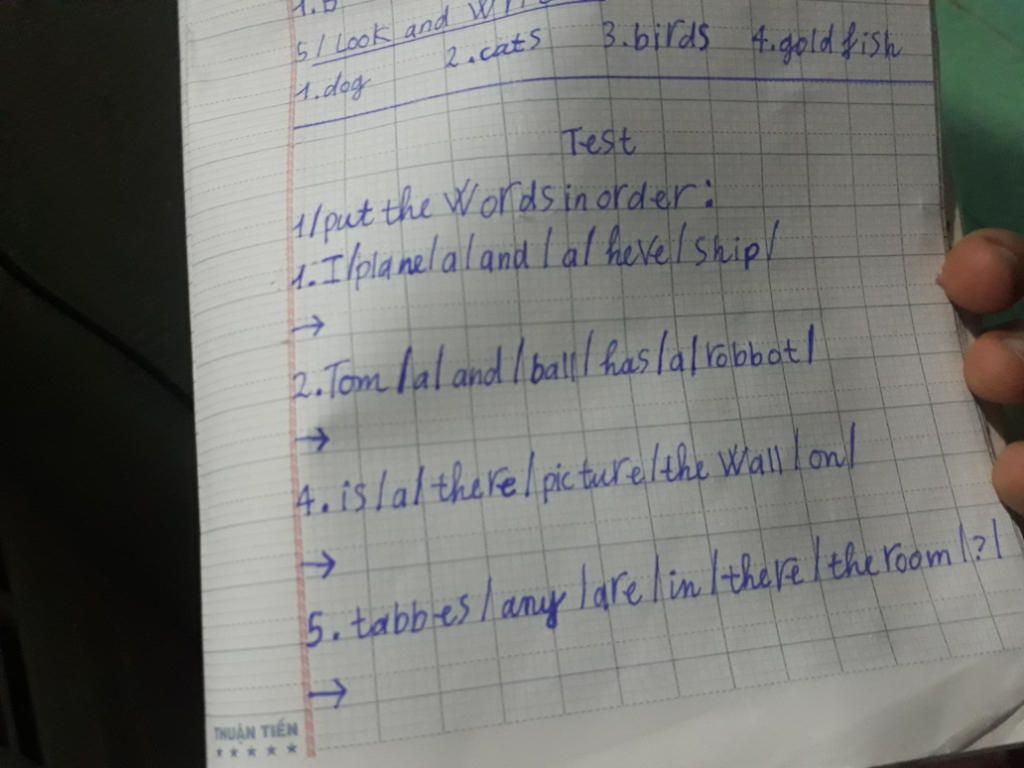 1.
5/ Look and
1.dog 2.cats 3.birds 4.goldfish
Test
1/put the Words in order:
1.I/plane/a/and/a/heve/ship/
→
2.Tom/a/and/ball/has/a/robbot/
→
4.is/a/there/picture/the wall/on/
→
5.tabbes/any/are/in/there/the room/?/
→
THUẬN TIẾN
★ ★ ★ ★ ★